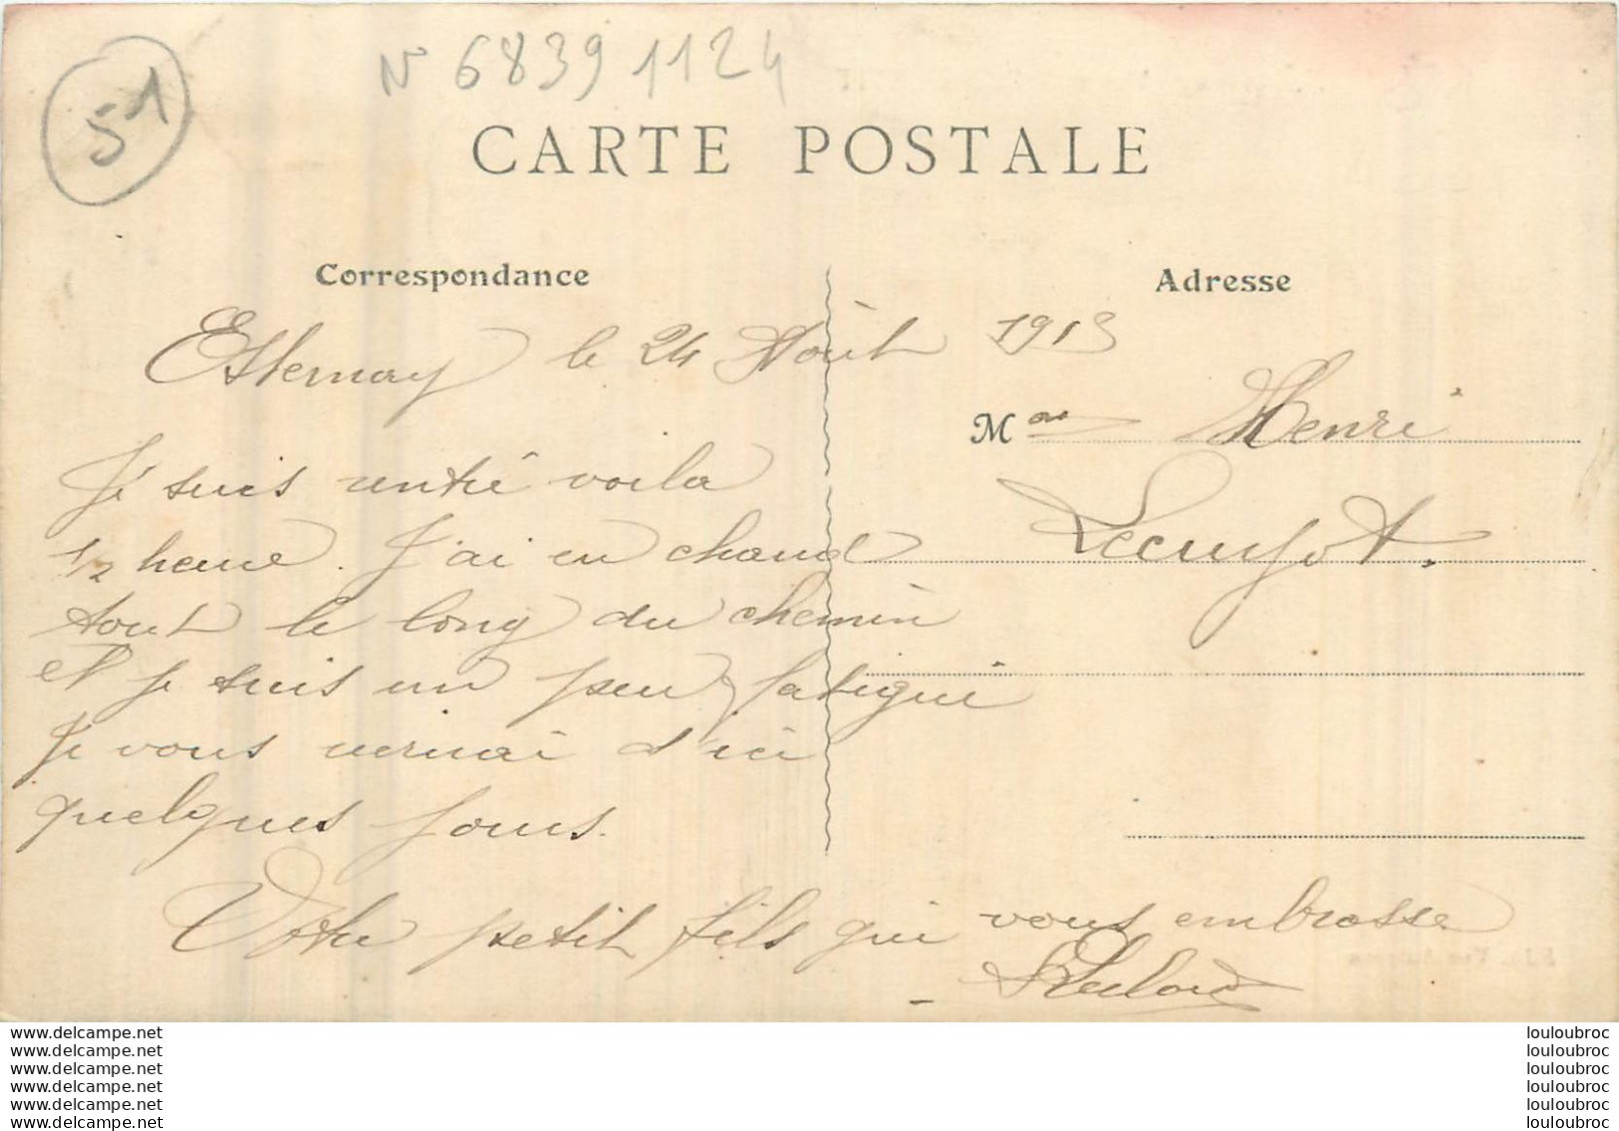 51
N° 68391124
CARTE POSTALE
Correspondance
Adresse
Esternay le 24 Août 1913
Mme Henri
Je suis rentré voila
1/2 heure. J'ai eu chaud
tout le long du chemin
et je suis un peu fatigué
Je vous verrai d'ici
quelques jours.
Votre petit fils qui vous embrasse
www.delcampe.net
www.delcampe.net
www.delcampe.net
www.delcampe.net
www.delcampe.net
www.delcampe.net
louloubroc
louloubroc
louloubroc
louloubroc
louloubroc
louloubroc